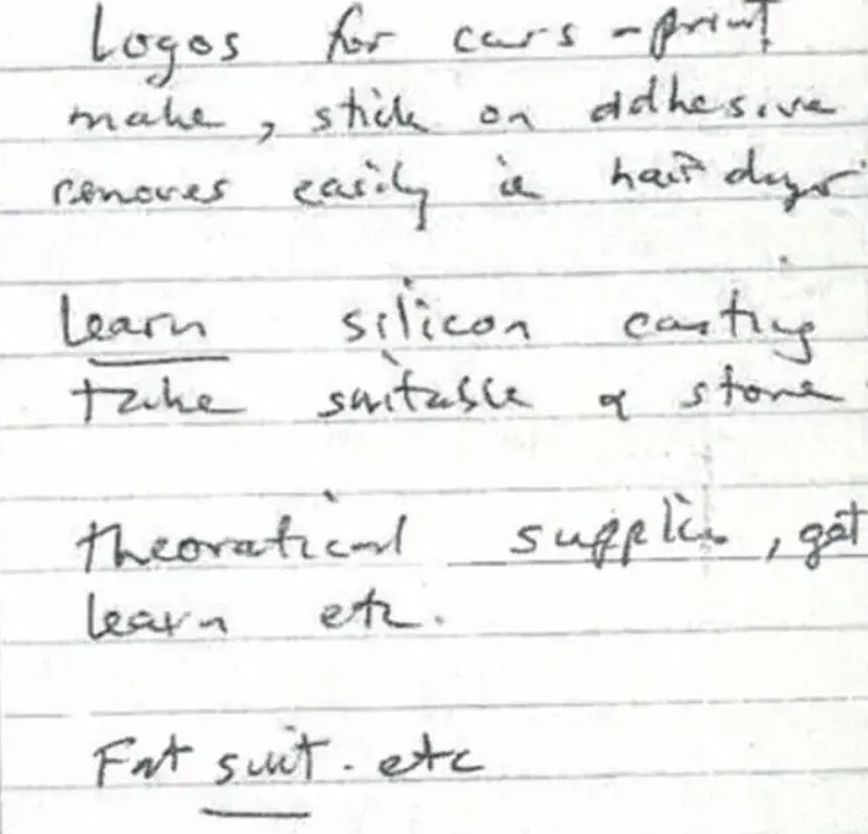 Logos for cars - print
make, stick on adhesive
removes easily ie hair dryer
learn silicon casting
take suitable & store
theoratical supplies, get
learn etc.
Fat suit. etc